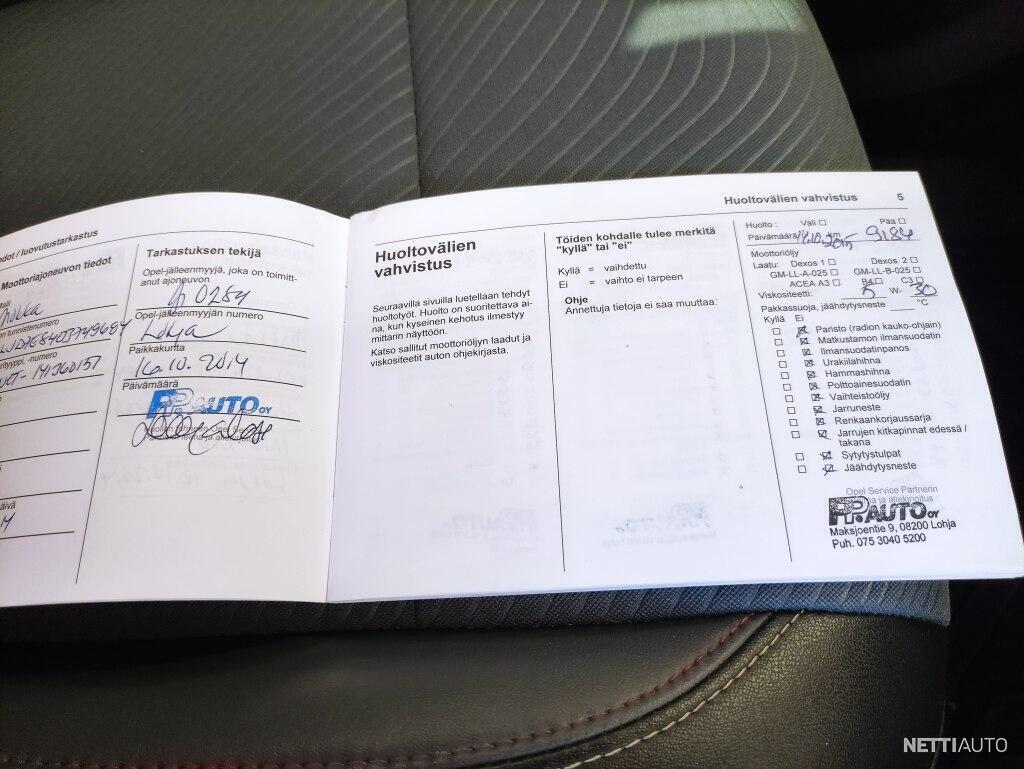 edot / luovutustarkastus
Moottoriajoneuvon tiedot
alli
n tunnistenumero
rityyppi, -numero
äivä
Tarkastuksen tekijä
Opel-jälleenmyyjä, joka on toimitt-
anut ajoneuvon
0284
Opel-jälleenmyyjän numero
Lohja
Paikkakunta
16.10. 2014
Päivämäärä
P.P. AUTO OY
Huoltovälien vahvistus 5
Huoltovälien
vahvistus
Seuraavilla sivuilla luetellaan tehdyt
huoltotyöt. Huolto on suoritettava ai-
na, kun kyseinen kehotus ilmestyy
mittarin näyttöön.
Katso sallitut moottoriöljyn laadut ja
viskositeetit auton ohjekirjasta.
Töiden kohdalle tulee merkitä
"kyllä" tai "ei"
Kyllä = vaihdettu
Ei = vaihto ei tarpeen
Ohje
Annettuja tietoja ei saa muuttaa:
Huolto: Väli Pää
Päivämäärä/km 9184
Moottoriöljy
Laatu: Dexos 1 Dexos 2
GM-LL-A-025 GM-LL-B-025
ACEA A3 B4 C3
Viskositeetti: 5 W- 30
Pakkassuoja, jäähdytysneste °C
Kyllä Ei
Paristo (radion kauko-ohjain)
Matkustamon ilmansuodatin
Ilmansuodatinpanos
Urakiilahihna
Hammashihna
Polttoainesuodatin
Vaihteistoöljy
Jarruneste
Renkaankorjaussarja
Jarrujen kitkapinnat edessä /
takana
Sytytystulpat
Jäähdytysneste
Opel Service Partnerin
P.P. AUTO OY
Maksjoentie 9, 08200 Lohja
Puh. 075 3040 5200
NETTIAUTO